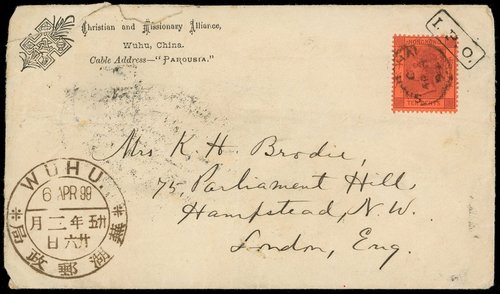 Christian and Missionary Alliance,
Wuhu, China.
Cable Address—"PAROUSIA."
I.P.O.
TEN CENTS
Mrs K. H. Brodie,
75, Parliament Hill,
Hampstead, N.W.
London, Eng.
WUHU.
6 APR 99
廿五年二月
廿六日
蕪湖郵政局